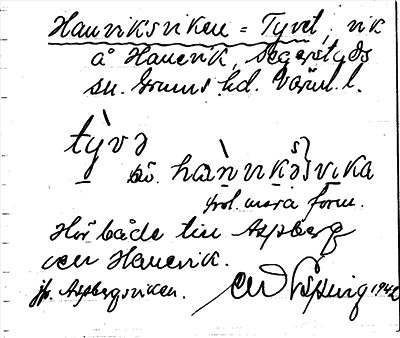 Hanviksviken = Tyvet, vik
å Hanevik, Segerstads
sn. Grums hd. Värml. l.
tỳvə
äv. hàn vikə s}vika
trol. mera form.
Hör både till Aspberg
och Hanevik.
jfr. Aspbergsviken.
1942